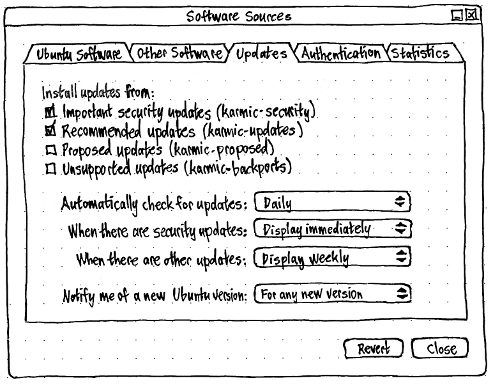 Software Sources
Ubuntu Software Other Software Updates Authentication Statistics
Install updates from:
Important security updates (karmic-security)
Recommended updates (karmic-updates)
Proposed updates (karmic-proposed)
Unsupported updates (karmic-backports)
Automatically check for updates: Daily
When there are security updates: Display immediately
When there are other updates: Display weekly
Notify me of a new Ubuntu version: For any new version
Revert Close